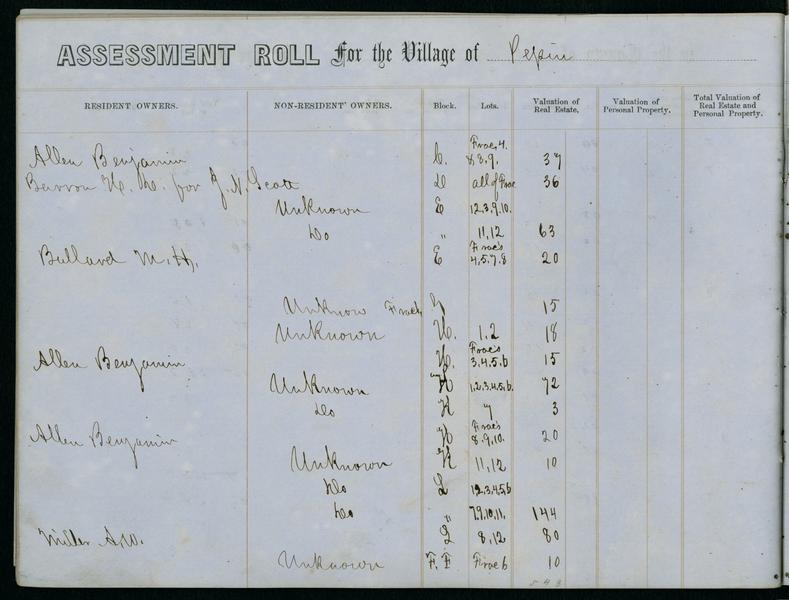 ASSESSMENT ROLL For the Village of Pepin
RESIDENT OWNERS. NON-RESIDENT OWNERS. Block. Lots. Valuation of Real Estate. Valuation of Personal Property. Total Valuation of Real Estate and Personal Property.
Frac. 4.
Allen Benjamin C. 8.3.9. 37
for J. N. Scott D all of Frac 36
Unknown E 1.2.3.9.10.
Do " 11,12 63
Frac's
Bullard M. H. E 4,5,7,8 20
Unknow Frac 15
Unknown H. 1,2 18
Frac's
Allen Benjamin H. 3,4,5,6 15
Unknown K 1,2,3,4,5,6. 72
Do K 7 3
Frac's
Allen Benjamin K 8,9,10. 20
Unknown K 11,12 10
Do L 1,2,3,4,5,6
Do " 7,9,10,11, 144
Miller A.W. L 8,12 80
Unknown F.F Frac 6 10
543